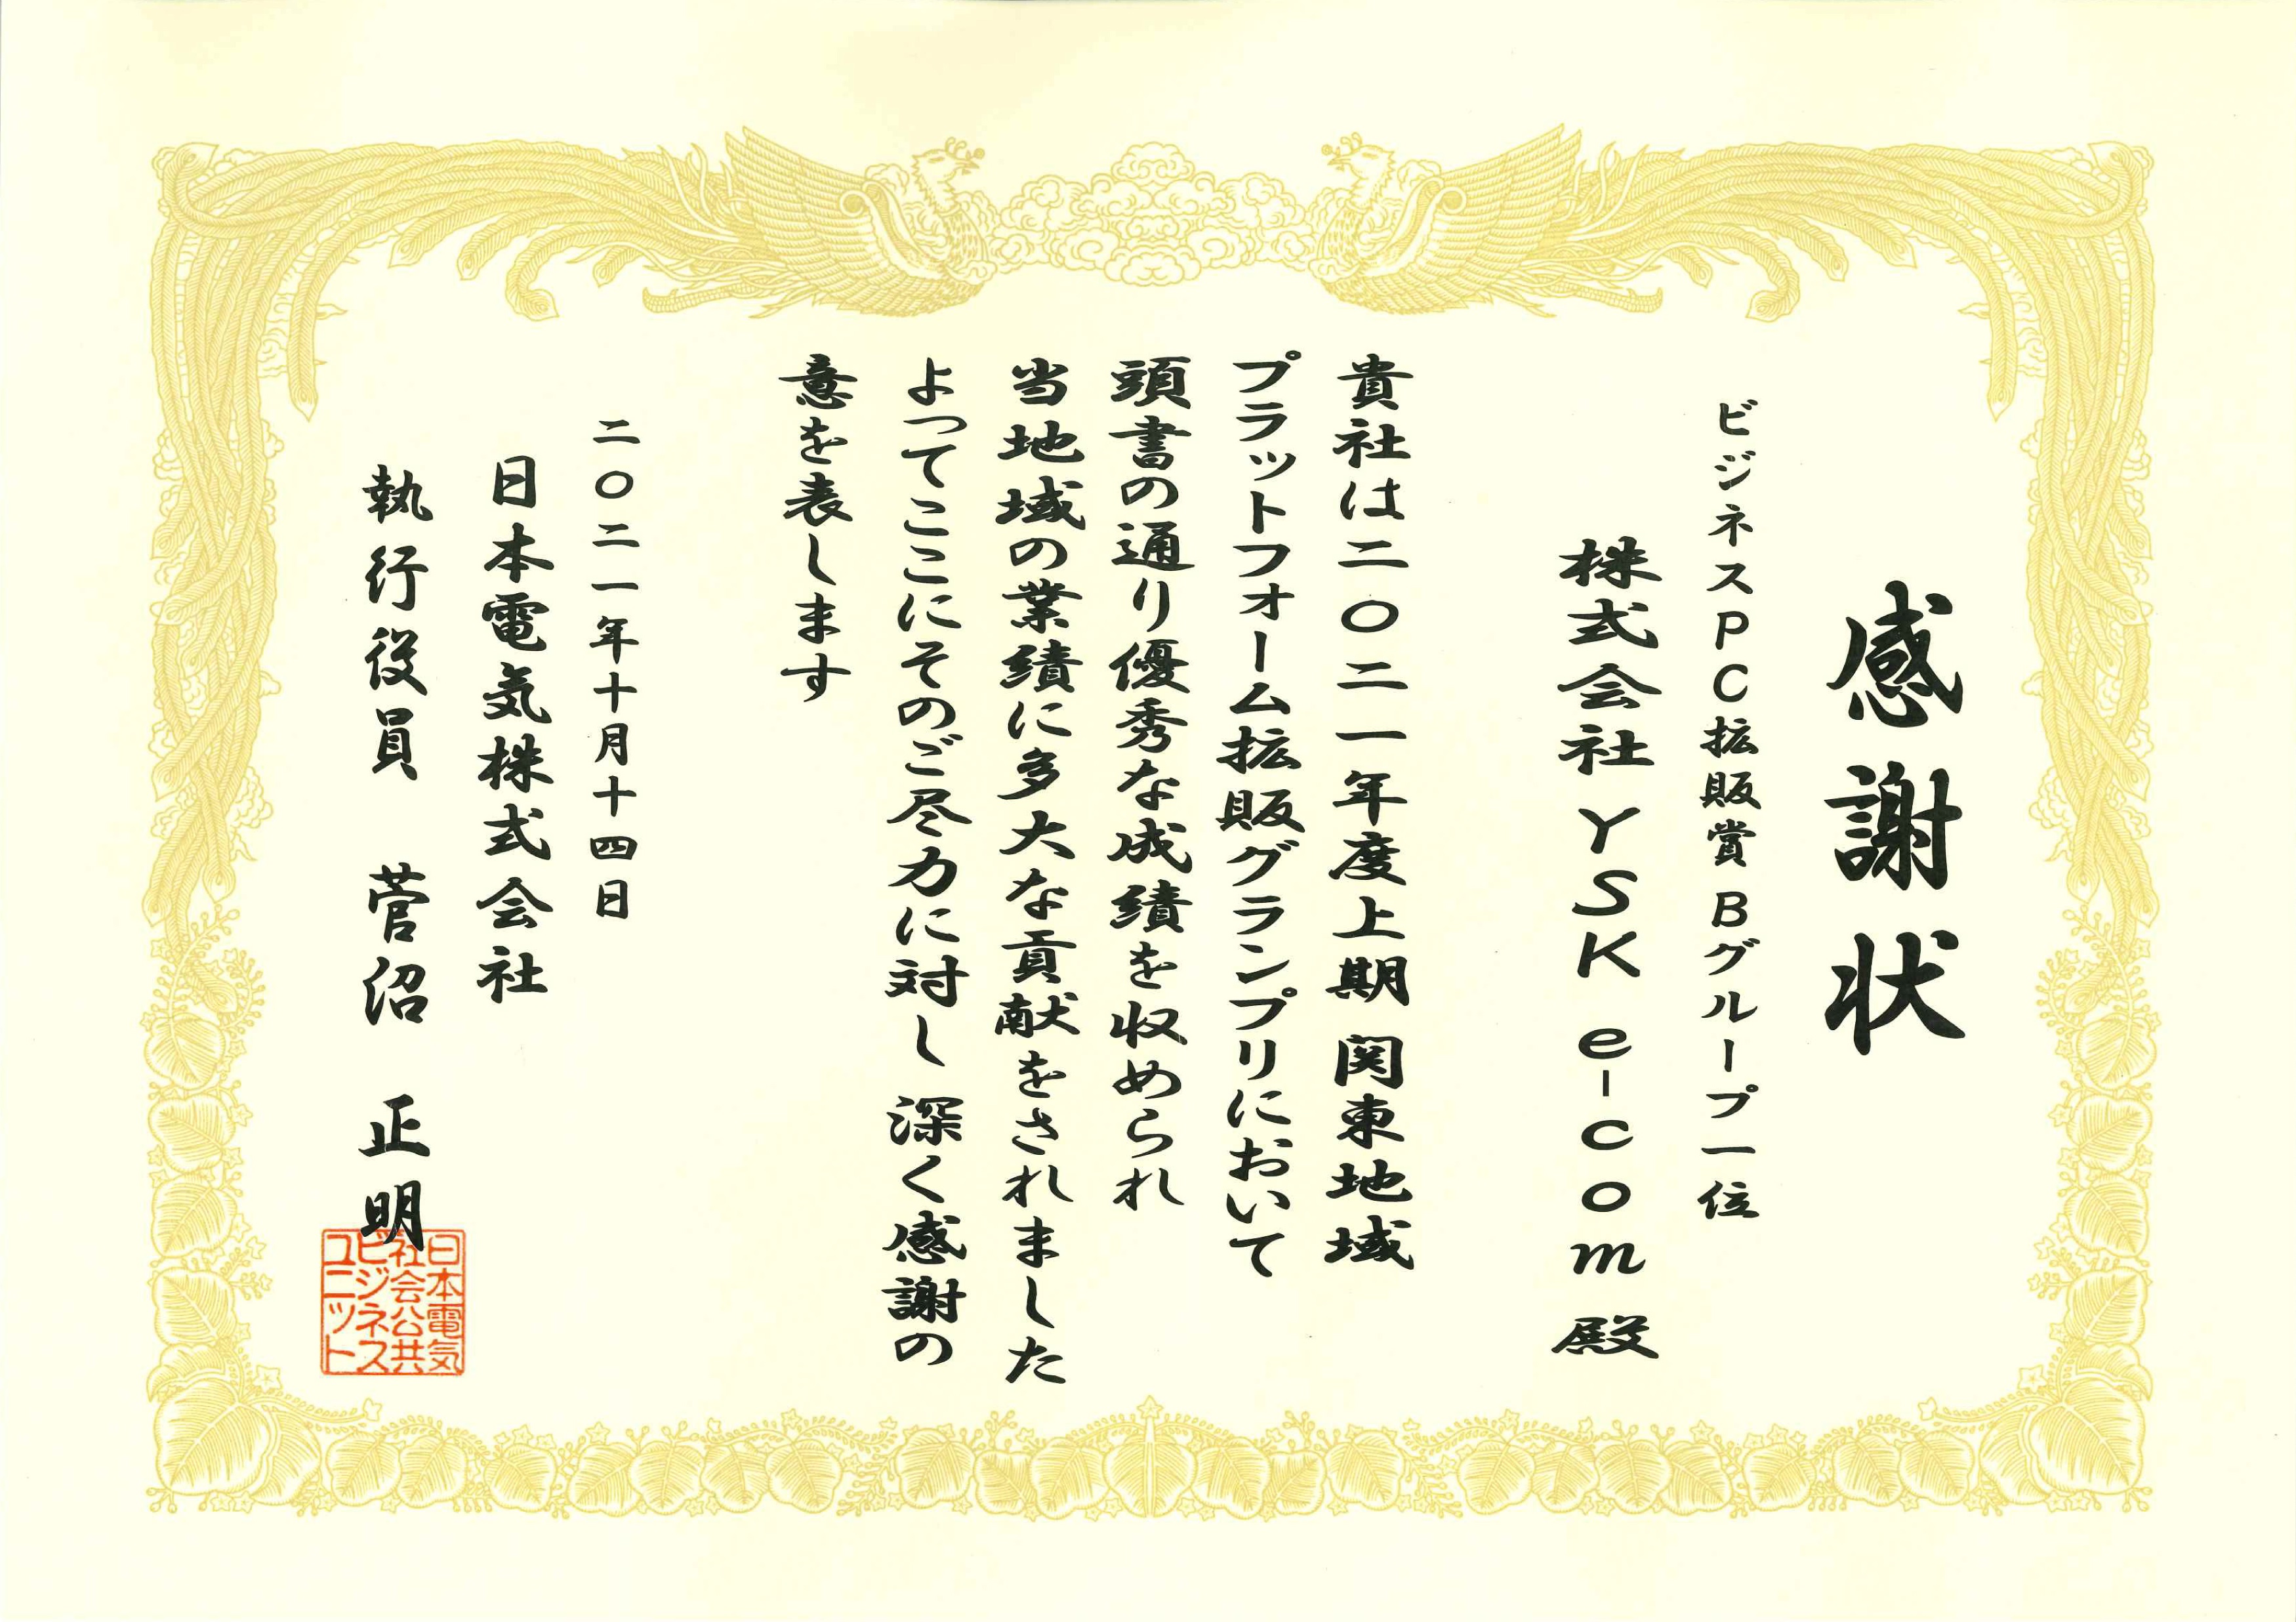 感謝状
ビジネスPC拡販賞Bグループ一位
株式会社YSK e-com 殿
貴社は二〇二一年度上期 関東地域
プラットフォーム拡販グランプリにおいて
頭書の通り優秀な成績を収められ
当地域の業績に多大な貢献をされました
よってここにそのご尽力に対し 深く感謝の
意を表します
二〇二一年十月十四日
日本電気株式会社
執行役員 菅沼 正明
日本電気
社会公共
ビジネス
ユニット